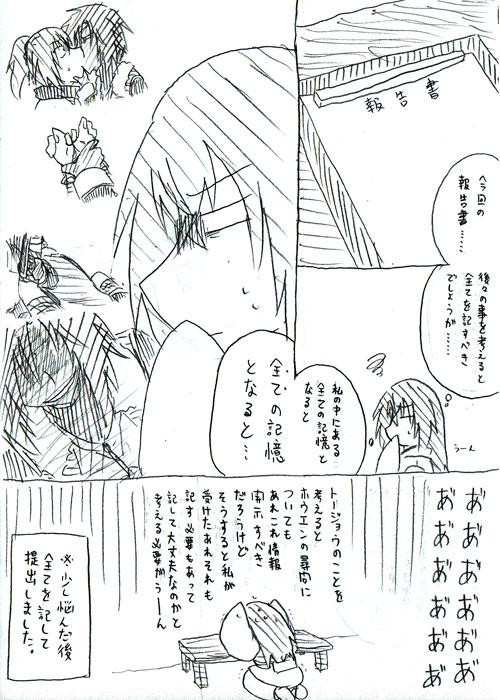 報告書
今回の
報告書……
後々の事を考えると
全てを記すべき
でしょうが……
うーん
私の中にある
全ての記憶と
なると
全ての記憶
となると…
あああああああ
あああああああ
トージョウのことを
考えると
ホウエンの尋問に
ついても
あれこれ情報
開示すべき
だろうけど
そうすると私が
受けたあれそれも
記す必要もあって
記して大丈夫なのかと
考える必要がうーん
※少し悩んだ後
全てを記して
提出しました。